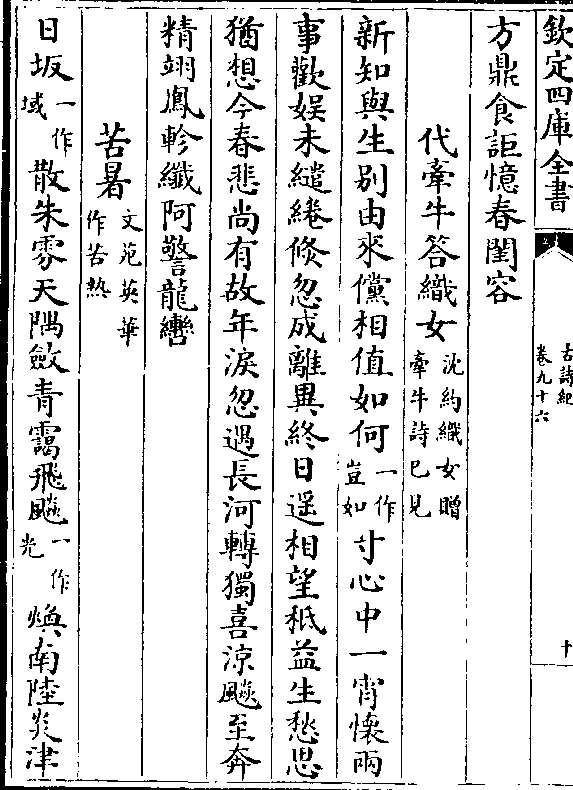 欽定四庫全書
古詩紀
卷九十六
十
方鼎食詎憶春閨容
代牽牛答織女沈約織女贈牽牛詩已見
新知與生別由來儻相值如何一作豈如寸心中一宵懷兩
事歡娱未繾綣倐忽成離異終日遥相望秖益生愁思
猶想今春悲尚有故年淚忽遇長河轉獨喜涼飈至奔
精翊鳳軫纖阿警龍轡
苦暑文苑英華作苦熱
日坂一作域散朱雰天隅斂青靄飛飈一作光焕南陸炎津